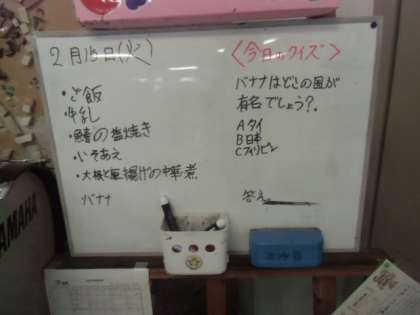 2月15日(火)
・ご飯
牛乳
・鯖の塩焼き
・いそあえ
・大根と厚揚げの中華煮
バナナ
<今日のクイズ>
バナナはどこの国が
有名でしょう?.
Aタイ
B日本
Cフィリピン
答え
YAMAHA